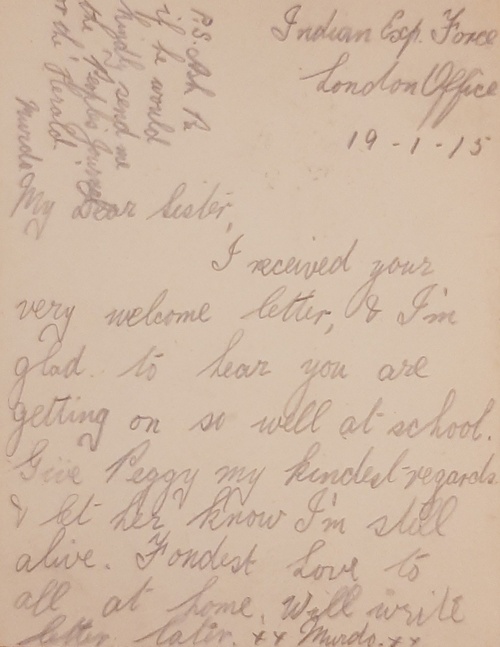 Indian Exp. Force
London Office
19-1-15
My Dear Sister,
I received your
very welcome letter, & I'm
glad to hear you are
getting on so well at school.
Give Peggy my kindest regards
& let her know I'm still
alive. Fondest Love to
all at home. Will write
letter later. xx Murdo. xx
P.S. Ask Pa
if he would
kindly send me
the People's Journal
or the Herald
Murdo